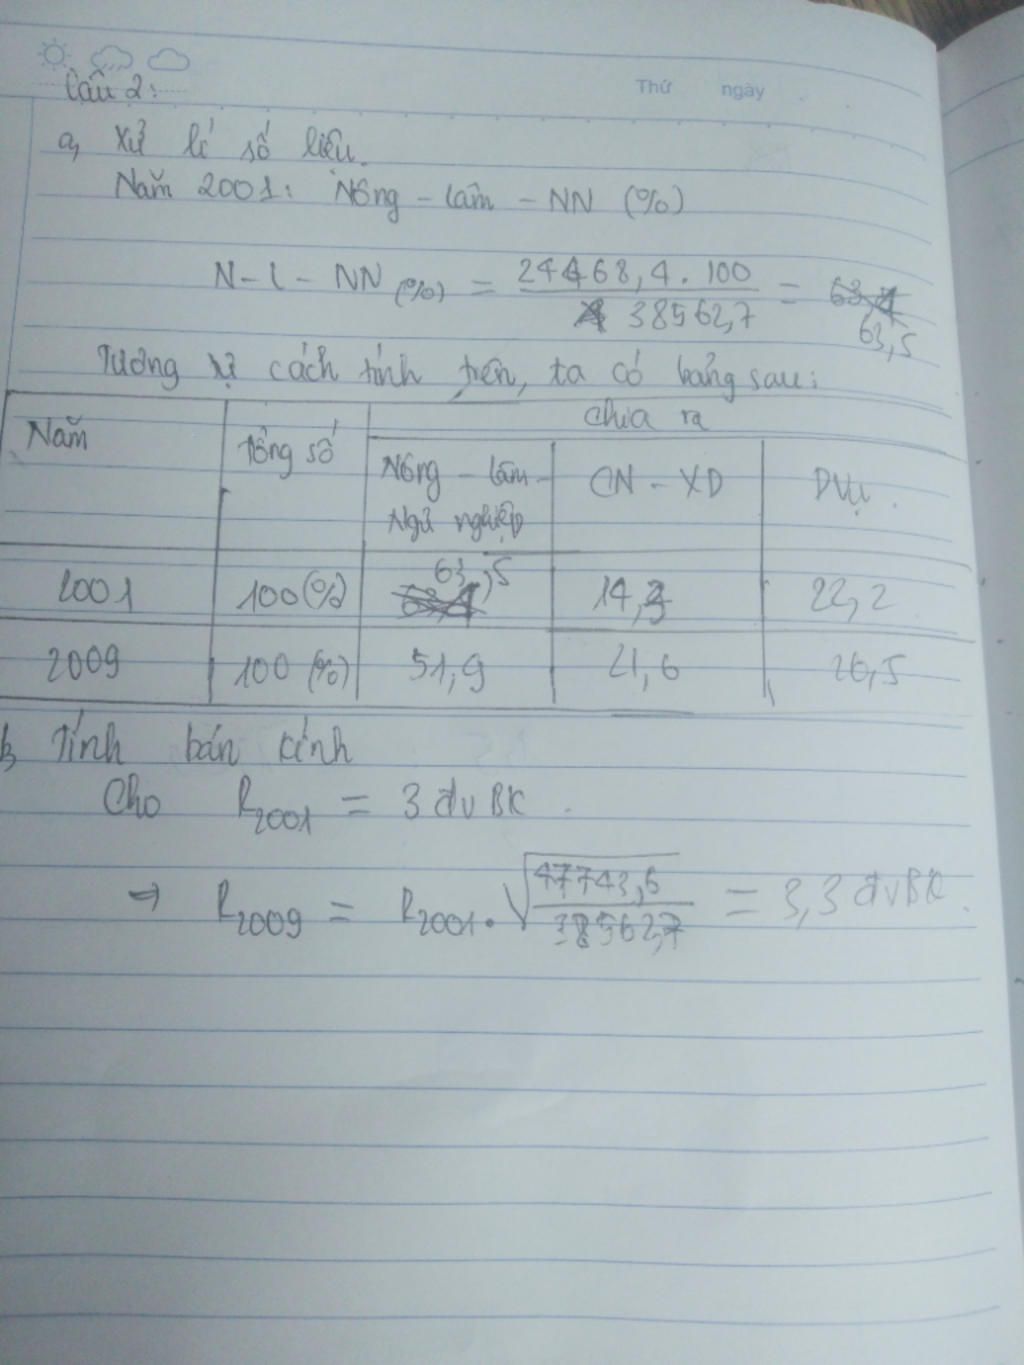 Thứ ngày
Câu 2:
a, Xử lí số liệu.
Năm 2001: Nông - lâm - NN (%)
N - L - NN (%) = 24468,4 . 100 / 38562,7 = 63,5
Tương tự cách tính trên, ta có bảng sau:
Năm Tổng số Chia ra
Nông - lâm - Ngư nghiệp CN - XD DVụ
2001 100(%) 63,5 14,3 22,2
2009 100 (%) 51,9 21,6 26,5
b, Tính bán kính
Cho R2001 = 3 đvBK
⇒ R2009 = R2001 . √47743,6 / 38562,7 = 3,3 đvBK.